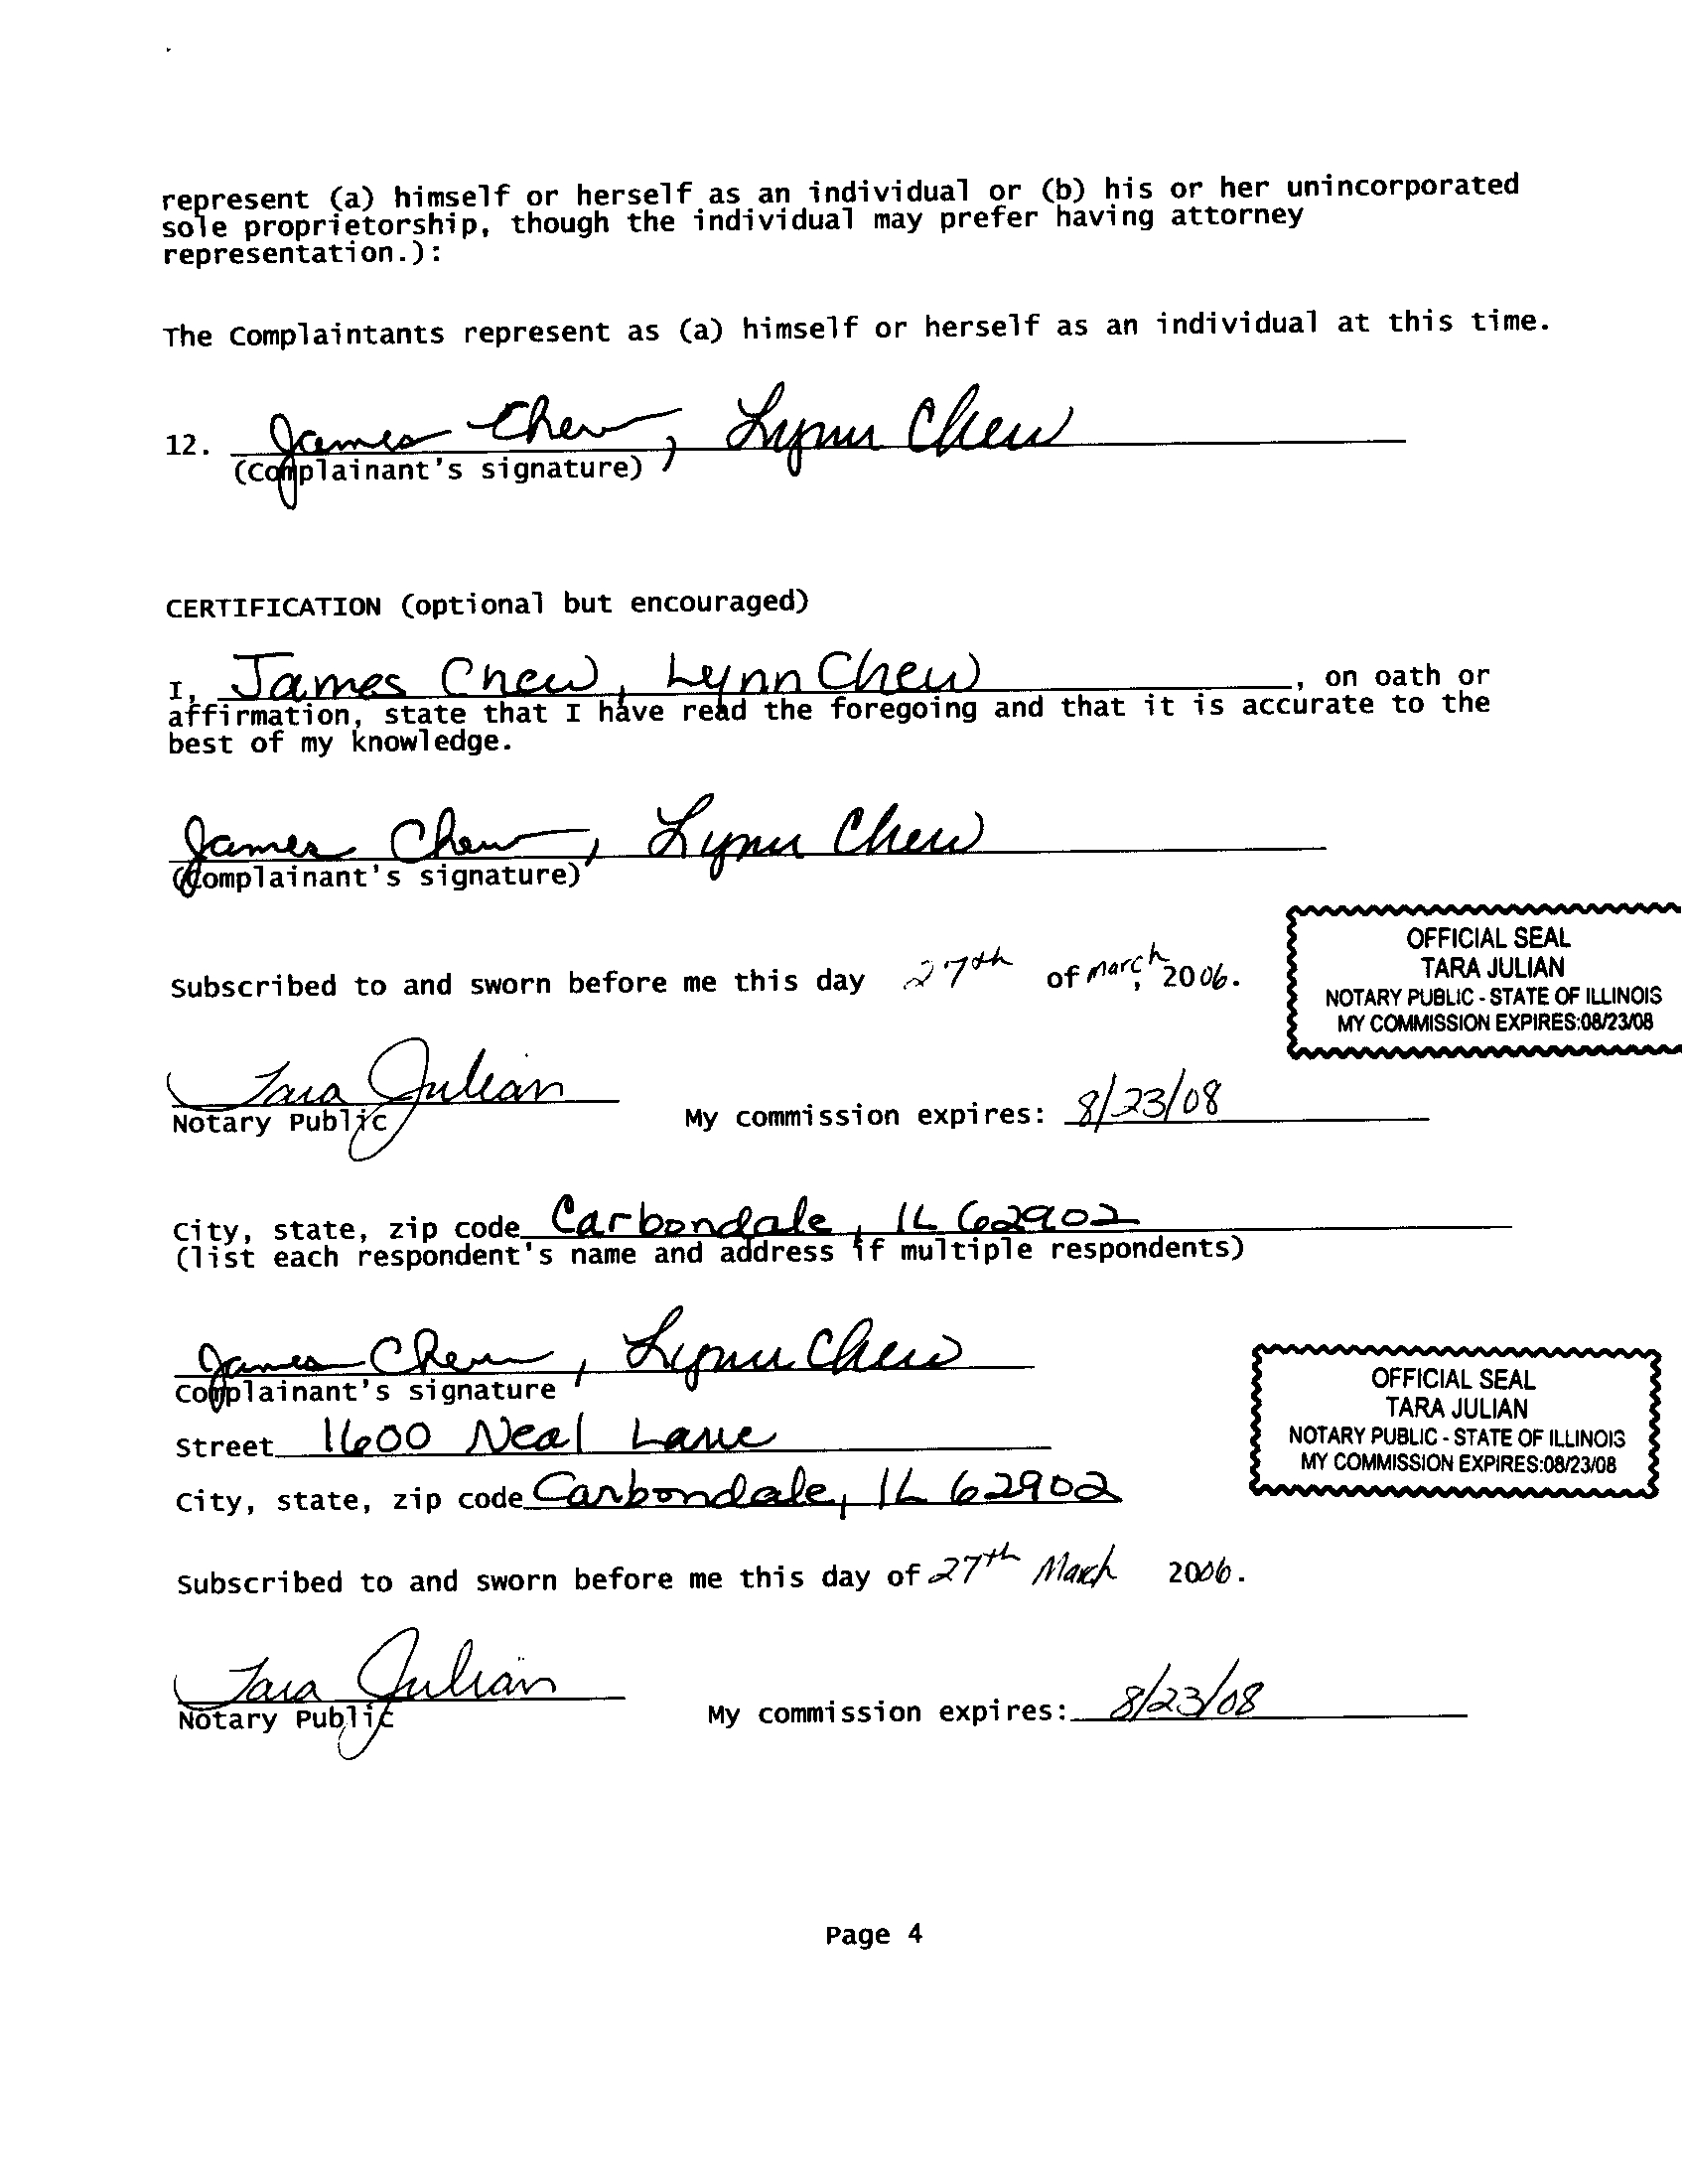 represent (a) himself or herself as an individual or (b) his or her unincorporated
sole proprietorship, though the individual may prefer having attorney
representation.):
The Complaintants represent as (a) himself or herself as an individual at this time.
12. James Chew, Lynn Chew
(Complainant's signature)
CERTIFICATION (optional but encouraged)
I, James Chew, Lynn Chew, on oath or
affirmation, state that I have read the foregoing and that it is accurate to the
best of my knowledge.
James Chew, Lynn Chew
(Complainant's signature)
OFFICIAL SEAL
TARA JULIAN
NOTARY PUBLIC - STATE OF ILLINOIS
MY COMMISSION EXPIRES:08/23/08
Subscribed to and sworn before me this day 27th of March, 2006.
Tara Julian
Notary Public My commission expires: 8/23/08
City, state, zip code Carbondale, IL 62902
(list each respondent's name and address if multiple respondents)
James Chew, Lynn Chew
Complainant's signature
OFFICIAL SEAL
TARA JULIAN
NOTARY PUBLIC - STATE OF ILLINOIS
MY COMMISSION EXPIRES:08/23/08
Street 1600 Neal Lane
City, state, zip code Carbondale, IL 62902
Subscribed to and sworn before me this day of 27th March 2006.
Tara Julian
Notary Public My commission expires: 8/23/08
Page 4